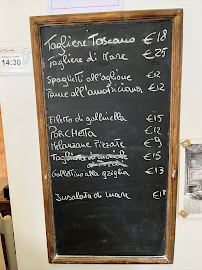 14:30
Tagliere Toscano €18
Tagliere di Mare €25
Spaghetti all'aglione €12
Penne all'amatriciana €12
Filetto di gallinella €15
PORCHETTA €12
Melanzane Pizzate €9
Tagliata €15
Galletto alla griglia €13
Insalata di mare €18